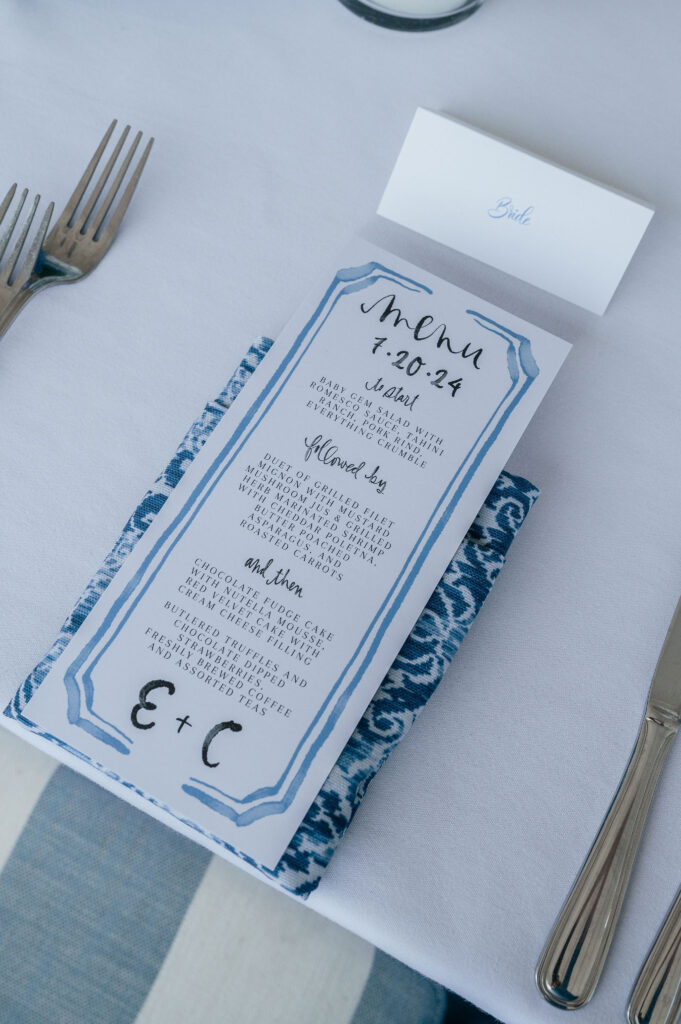 Bride
menu
7.20.24
to start
BABY GEM SALAD WITH
ROMESCO SAUCE, TAHINI
RANCH, PORK RIND,
EVERYTHING CRUMBLE
followed by
DUET OF GRILLED FILET
MIGNON WITH MUSTARD
MUSHROOM JUS & GRILLED
HERB MARINATED SHRIMP
WITH CHEDDAR POLETNA,
BUTTER POACHED
ASPARAGUS, AND
ROASTED CARROTS
and then
CHOCOLATE FUDGE CAKE
WITH NUTELLA MOUSSE,
RED VELVET CAKE WITH
CREAM CHEESE FILLING
BUTLERED TRUFFLES AND
CHOCOLATE DIPPED
STRAWBERRIES,
FRESHLY BREWED COFFEE
AND ASSORTED TEAS
E + C